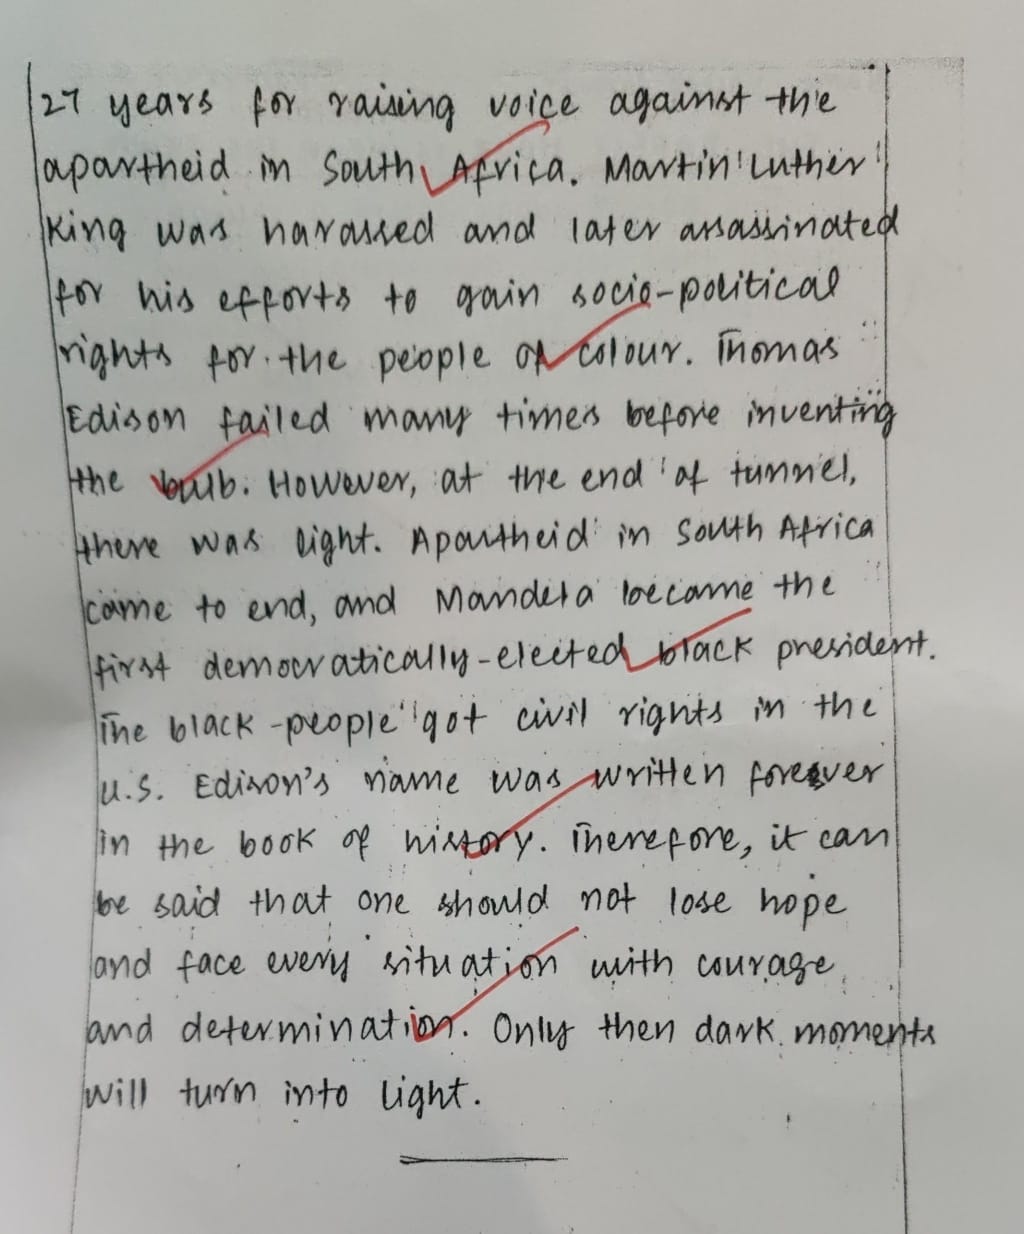 27 years for raising voice against the
apartheid in South Africa. Martin Luther
King was harassed and later assassinated
for his efforts to gain socio-political
rights for the people of colour. Thomas
Edison failed many times before inventing
the bulb. However, at the end of tunnel,
there was light. Apartheid in South Africa
came to end, and Mandela became the
first democratically-elected black president.
The black-people got civil rights in the
U.S. Edison's name was written forever
in the book of history. Therefore, it can
be said that one should not lose hope
and face every situation with courage
and determination. Only then dark moments
will turn into light.